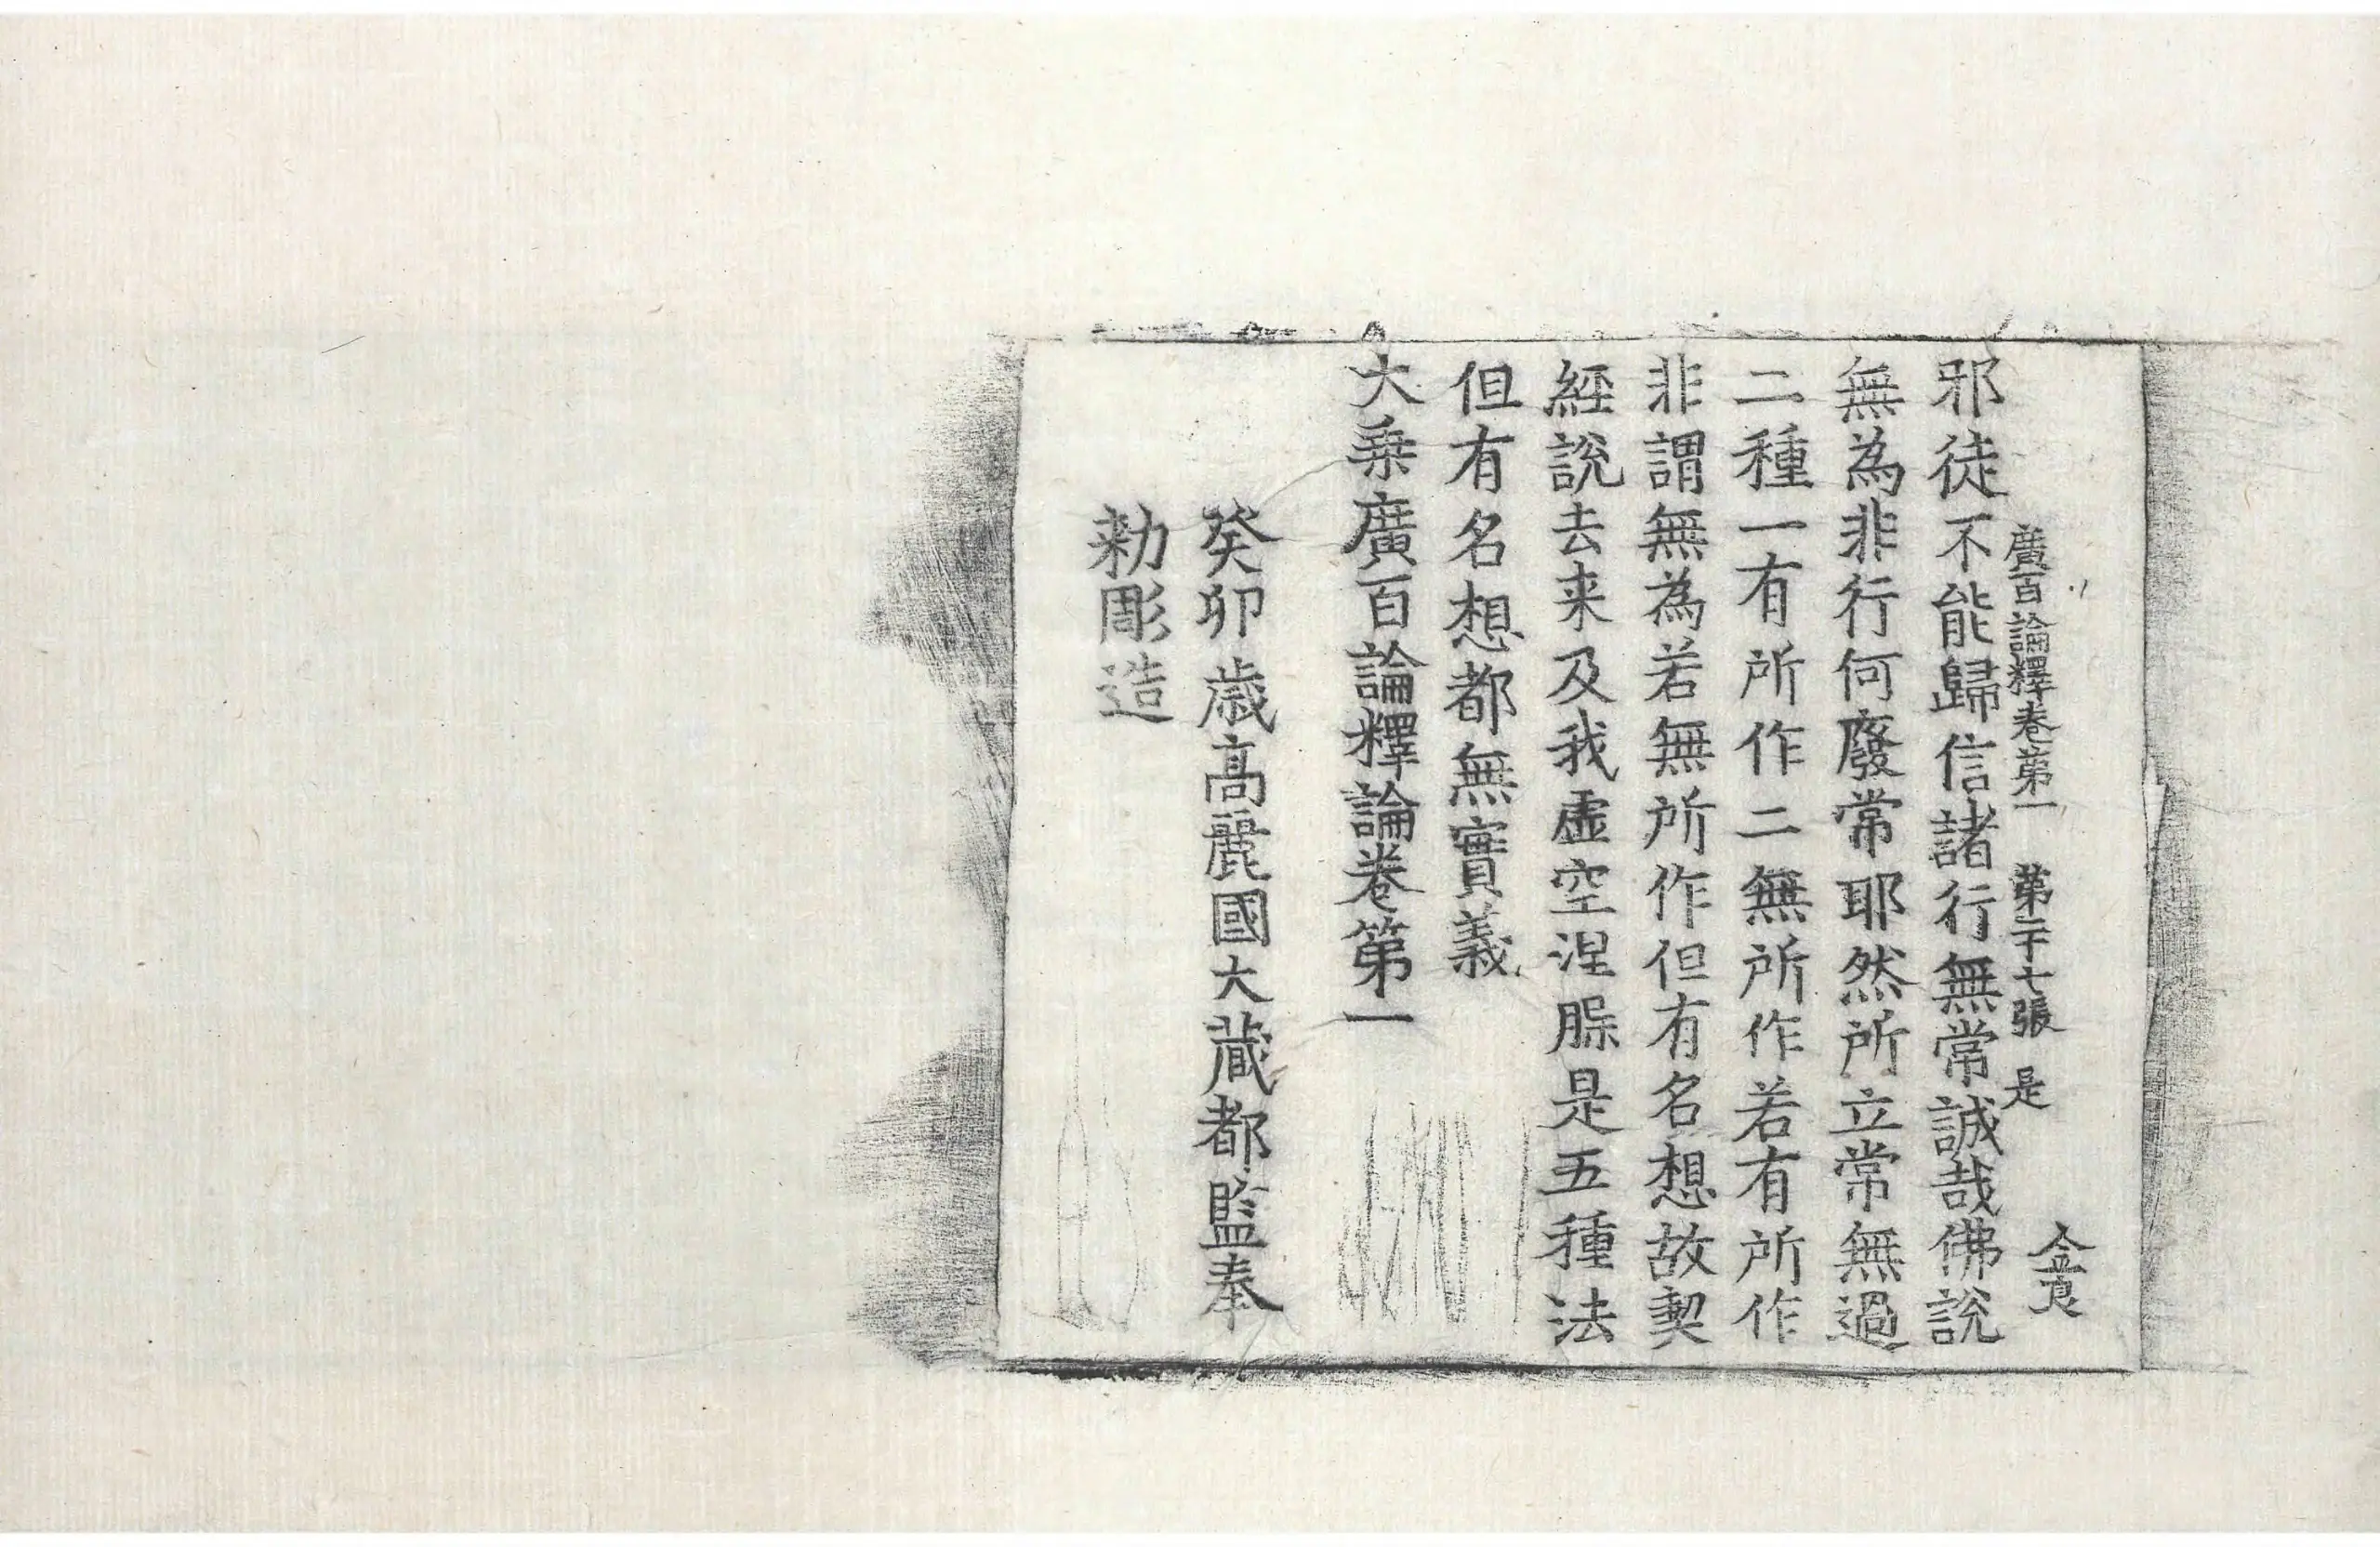 廣百論釋卷第一 第二十七張 是
邪徒不能歸信諸行無常誠哉佛說
無為非行何廢常耶然所立常無過
二種一有所作二無所作若有所作
非謂無為若無所作但有名想故契
經說去来及我虛空涅脲是五種法
但有名想都無實義
大乗廣百論釋論卷第一
癸卯歳高麗國大藏都監奉
勑彫造